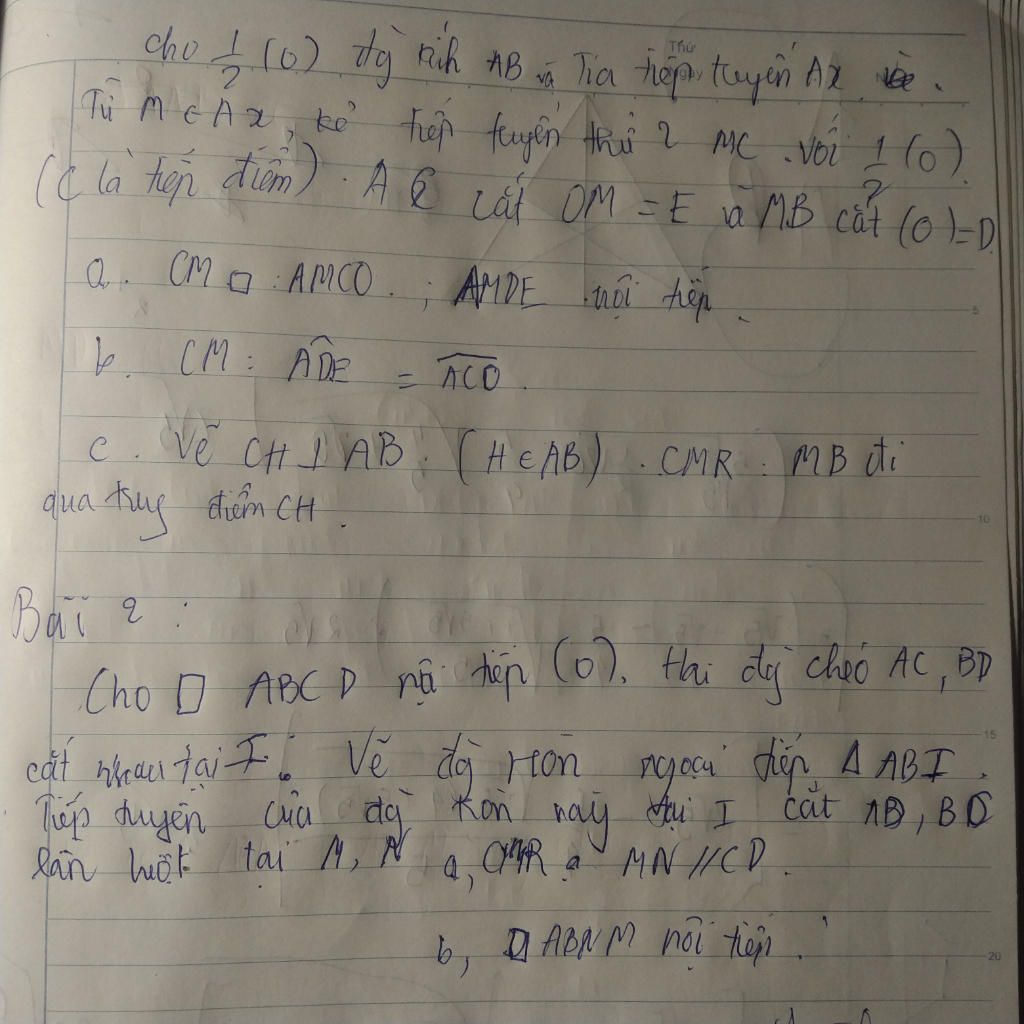 Cho 1/2 (O) đg kính AB và Tia tiếp tuyến Ax.
Từ M ∈ Ax, kẻ tiếp tuyến thứ 2 MC với 1/2 (O).
(C là tiếp điểm). AC cắt OM = E và MB cắt (O) = D
a. CM □ : AMCO. ; AMDE nội tiếp.
b. CM : ADE = ACO.
c. Vẽ CH ⊥ AB. (H ∈ AB). CMR : MB đi
qua trug điểm CH.
Bài 2 :
Cho □ ABCD nội tiếp (O). Hai đg chéo AC, BD
cắt nhau tại I. Vẽ đg tròn ngoại tiếp Δ ABI.
Tiếp tuyến của đg tròn này tại I cắt
lần lượt tại M, N a, CMR MN // CD.
b, □ ABNM nội tiếp.
Thứ
5
10
15
20